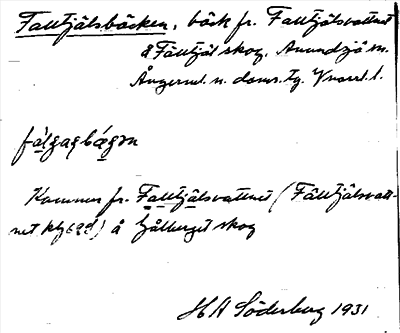 Falltjälsbäcken, bäck fr. Falltjälsvattnet
å Fälltjäl skog, Anundsjö sn.
Ångerml. n. doms. tg. Vnorrl. l.
fálgagbǽgɔn
Kommer fr. Falltjälsvattnet (Fälltjälsvatt-
net) å skog
HA Söderberg 1931